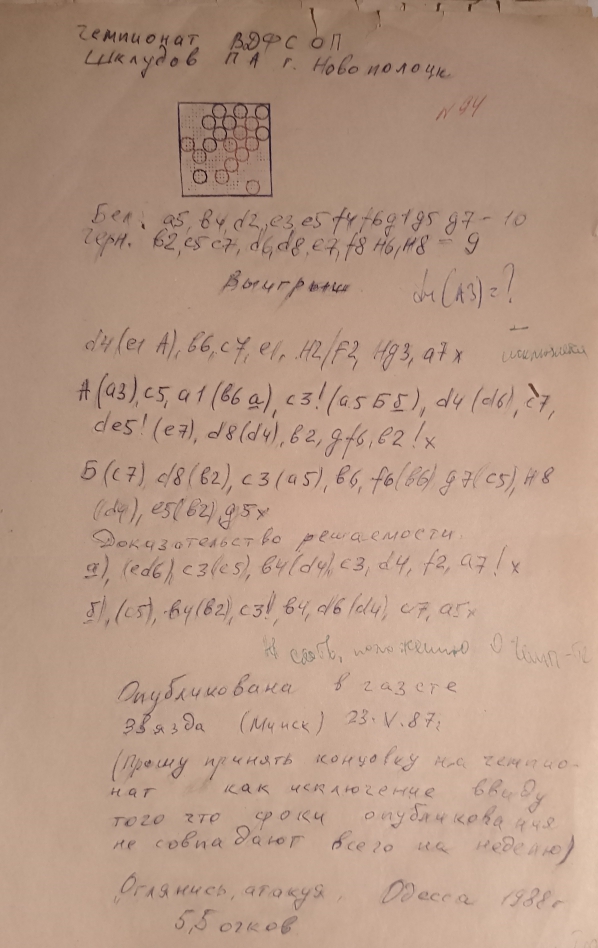 Чемпионат ВДФСОП
Шклудов П А г. Новополоцк
N 94
Бел. a5, в4, d2, e3, e5 f4 f6 g1 g5 g7 - 10
Черн. в2, c5 c7, d6, d8, e7, f8 H6, H8 = 9
Выигрыш
d4 (A3) = ?
d4 (e1 A), в6, c7, e1, H2/f2, Hg3, a7x
A (a3), c5, a1 (в6 a), c3! (a5 Б б), d4 (d6), c7,
de5! (e7), d8 (d4), в2, gf6, в2! x
Б (c7), d8 (в2), c3 (a5), в6, f6 (в6) g7 (c5), H8
(d4), e5 (в2) g5x
Доказательство решаемости
а), (ed6), c3 (c5), в4 (d4), c3, d4, f2, a7! x
б), (c5), в4 (в2), c3!, в4, d6 (d4), c7, a5x
положению о
Опубликована в газете
Звязда (Минск) 23.V.87г
(Прошу принять концовку на чемпио-
нат как исключение ввиду
того что сроки опубликования
не совпадают всего на неделю)
"Оглянись, атакуя, Одесса 1988г
5,5 очков